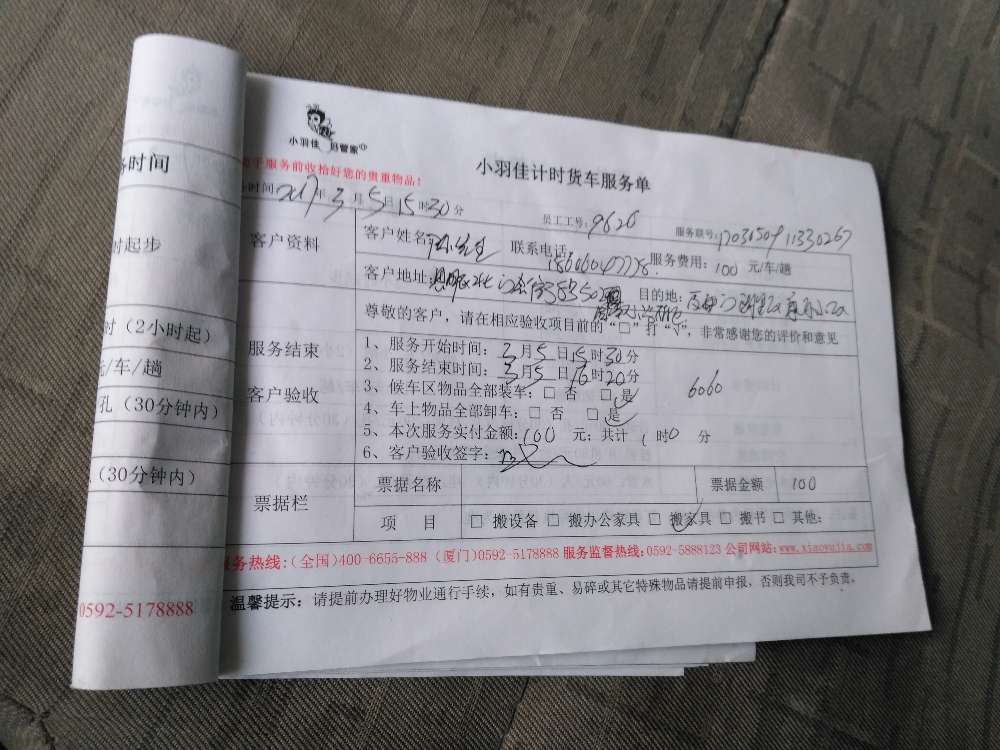 小羽佳 好管家
小羽佳计时货车服务单
于服务前收拾好您的贵重物品!
务时间:2017年3月5日15时30分
员工工号:9626
服务联号:
客户资料
客户姓名: 联系电话: 服务费用:100 元/车/趟
客户地址: 目的地:
尊敬的客户,请在相应验收项目前的“□”打“√”,非常感谢您的评价和意见
服务结束
客户验收
1、服务开始时间:3月5日15时30分
2、服务结束时间:3月5日16时20分
3、候车区物品全部装车:□ 否 □ 是
6060
4、车上物品全部卸车:□ 否 □ 是
5、本次服务实付金额:100 元;共计 1 时0 分
6、客户验收签字:
票据栏
票据名称 票据金额 100
项 目 □ 搬设备 □ 搬办公家具 □ 搬家具 □ 搬书 □ 其他:
服务热线:(全国)400-6655-888 (厦门)0592-5178888 服务监督热线:0592-5888123 公司网站:www.xiaoyujia.com
温馨提示:请提前办理好物业通行手续,如有贵重、易碎或其它特殊物品请提前申报,否则我司不予负责。
务时间
时起步
时(2小时起)
元/车/趟
孔(30分钟内)
(30分钟内)
0592-5178888